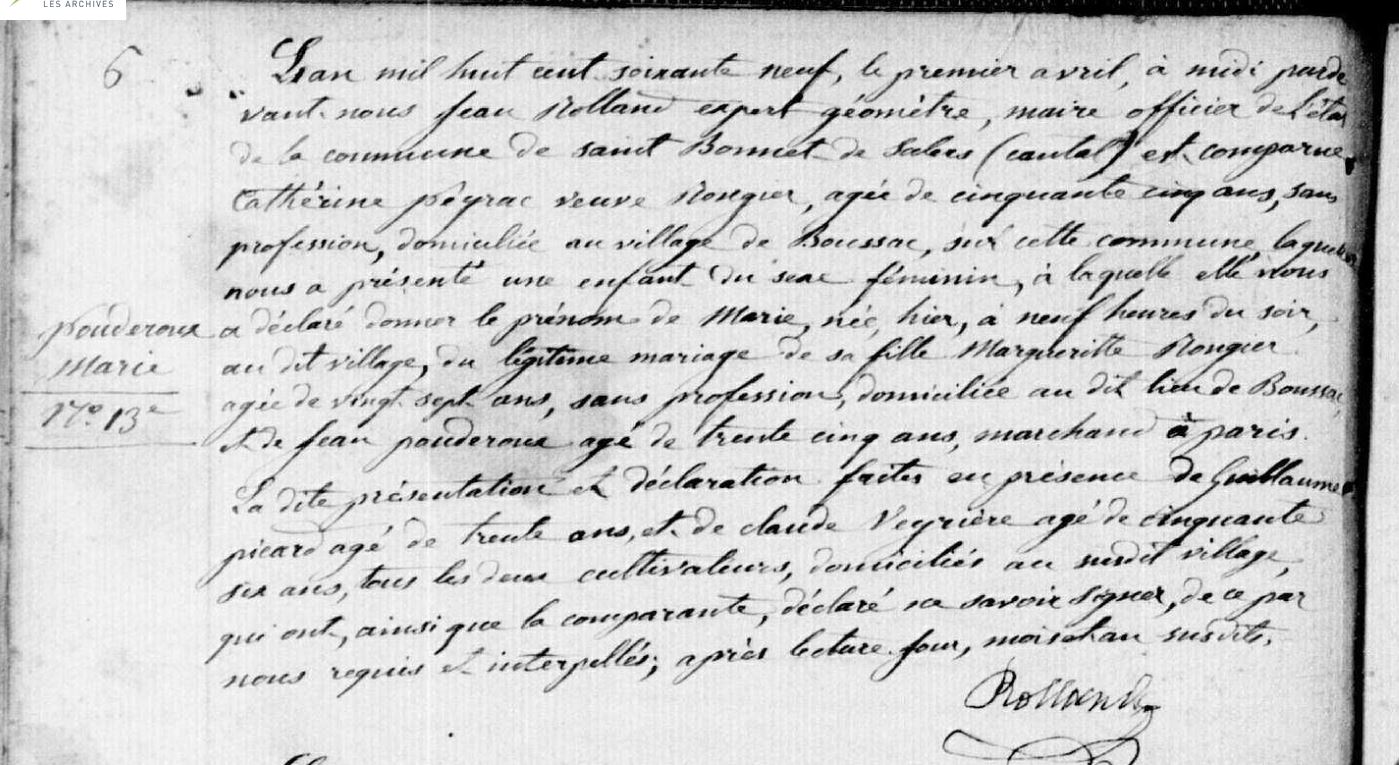 LES ARCHIVES
6
L'an mil huit cent soixante neuf, le premier avril, à midi parde
vant nous Jean Rolland expert géomètre, maire officier de l'état
de la commune de saint Bonnet de Salers (cantal) est comparue
Cathérine peyrac veuve Rongier, agée de cinquante cinq ans, sans
profession, domiciliée au village de Boussac, sur cette commune, laquelle
nous a présenté une enfant du sexe féminin, à laquelle elle nous
a déclaré donner le prénom de Marie, née, hier, à neuf heures du soir,
au dit village, du légitime mariage de sa fille Margueritte Rongier
agée de vingt sept ans, sans profession, domiciliée au dit lieu de Boussac,
et de Jean pouderoux agé de trente cinq ans, marchand à paris.
La dite présentation et déclaration faites en présence de Guillaume
picard agé de trente ans, et de claude Veyrière agé de cinquante
six ans, tous les deux cultivateurs, domiciliés au susdit village,
qui ont, ainsi que la comparante, déclaré ne savoir signer, de ce par
nous requis et interpellés; après lecture. Jour, mois et an susdits.
Rolland
pouderoux
Marie